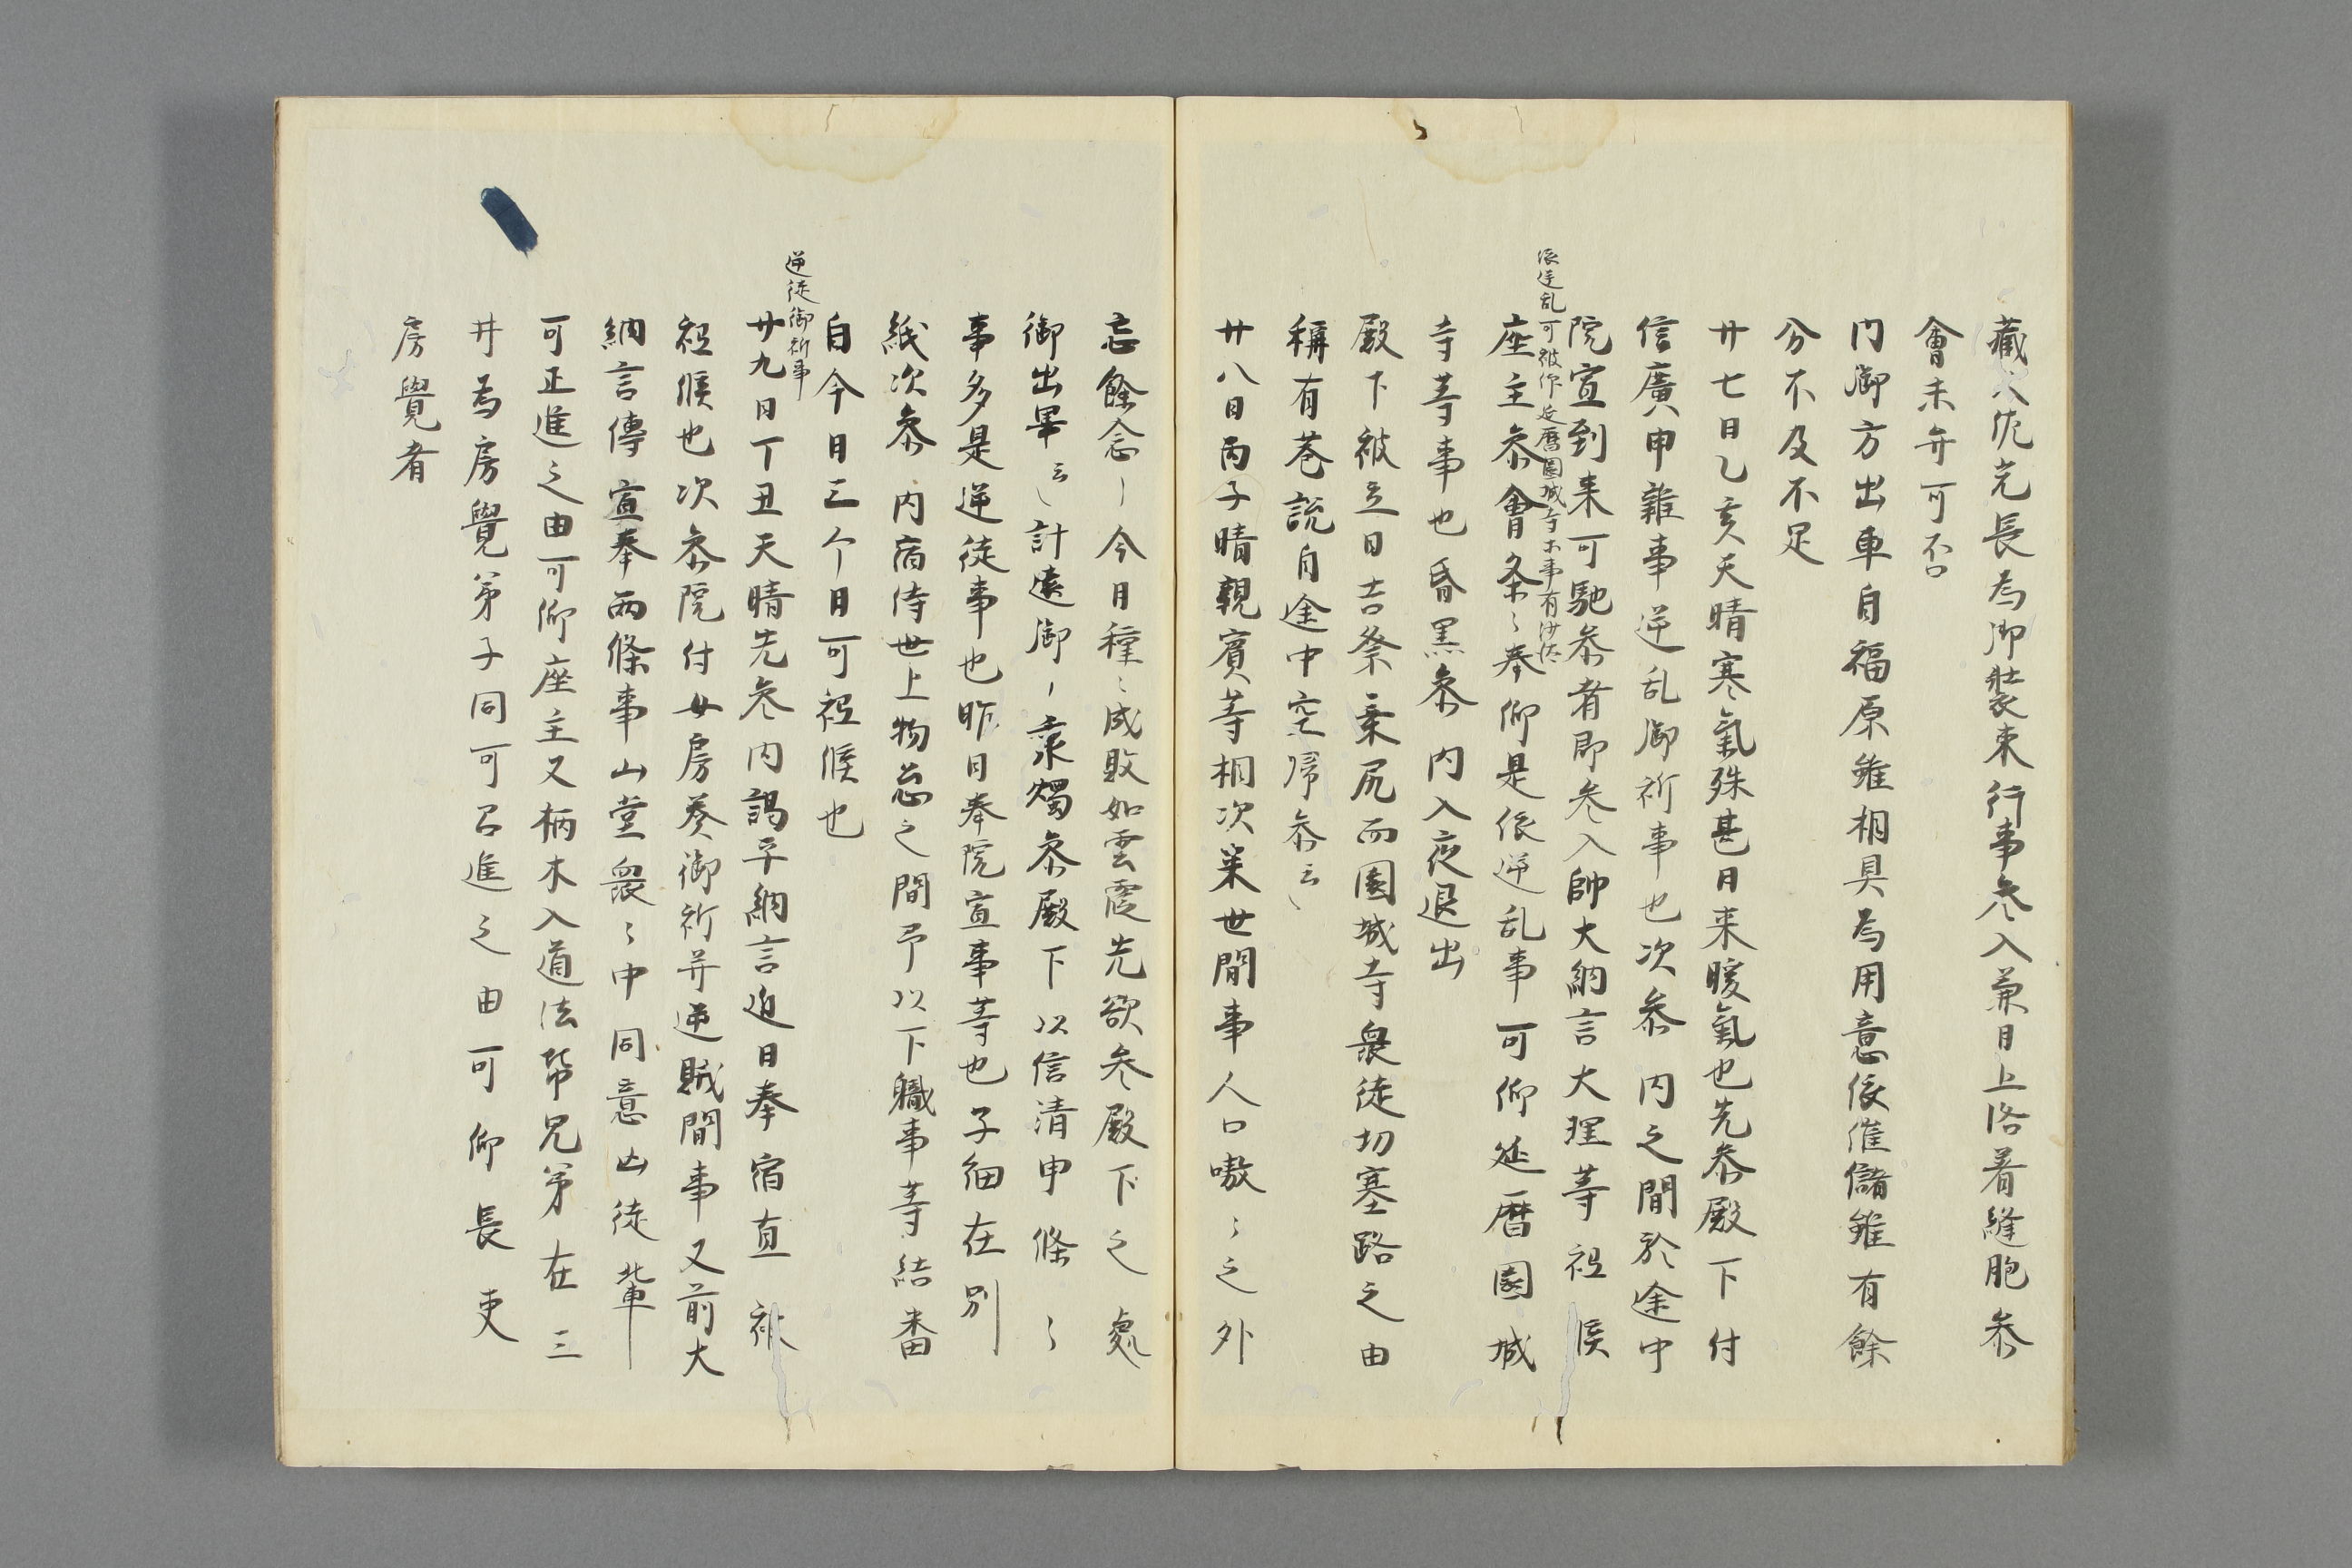 藏人佐光長為御裝束行事參入兼日上洛着縫胞參
會未弁可否
門御方出車自福原雖相具為用意依催儲雖有餘
分不及不足
廿七日乙亥天晴寒氣殊甚日来暖氣也先參殿下付
信廣申雜事逆乱御祈事也次參　内之間於途中
依逆乱可被仰延暦園城寺木事有沙汰
院宣到来可馳參者即參入帥大納言大理等祗候
座主參會条〻奉仰是依逆乱事可仰延暦園城
寺等事也昏黒參　内入夜退出
殿下被立日吉祭乗尻而園城寺衆徒切塞路之由
稱有巷説自途中空帰參云〻
廿八日丙子晴親賓等相次来世間事人口嗷〻之外
忘餘念〻今日種〻成敗如雲霞先欲參殿下之處
御出畢云〻計遠御〻秉燭參殿下以信清申條〻
事多是逆徒事也昨日奉院宣事等也子細在別
紙次參　内宿侍世上物忩之間予以下職事等結番
自今日三个日可祗候也
逆徒御祈事
廿九日丁丑天晴先參内謁平納言迫日奉宿直
祗候也次參院付女房奏御祈并逆賊間事又前大
納言傳宣奉兩條事山堂衆〻中同意凶徒輩
可正進之由可仰座主又柄木入道法幣兄弟在三
井為房覺弟子同可召進之由可仰長吏
房覺者